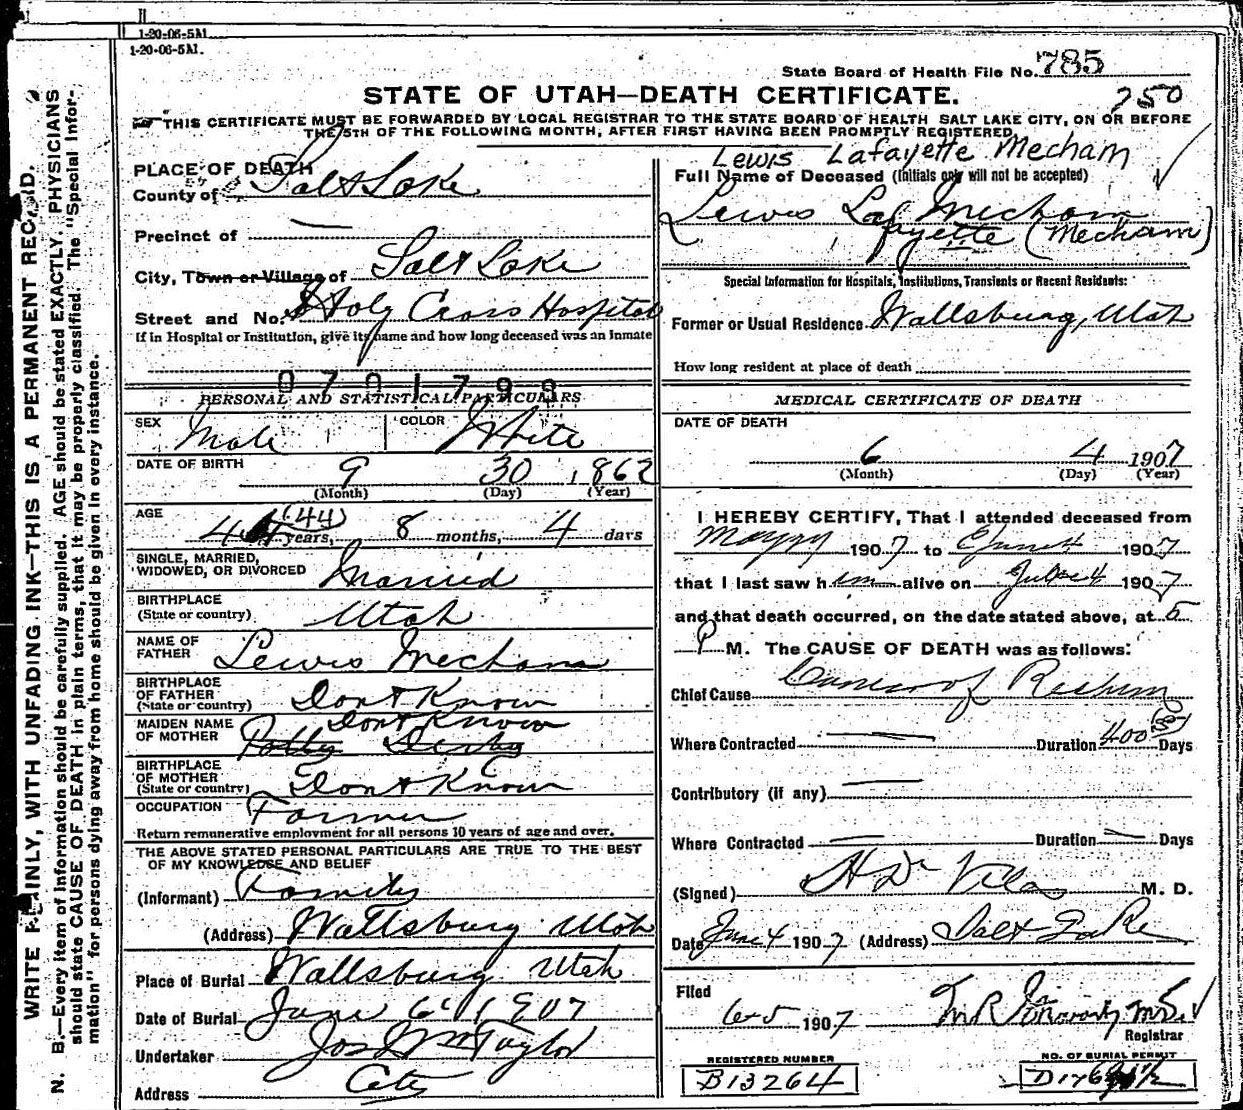 1-20-06-5M.
1-20-06-5M.
State Board of Health File No. 785
STATE OF UTAH—DEATH CERTIFICATE.
750
THIS CERTIFICATE MUST BE FORWARDED BY LOCAL REGISTRAR TO THE STATE BOARD OF HEALTH SALT LAKE CITY, ON OR BEFORE
THE 5TH OF THE FOLLOWING MONTH, AFTER FIRST HAVING BEEN PROMPTLY REGISTERED.
WRITE PLAINLY, WITH UNFADING INK—THIS IS A PERMANENT RECORD.
N. B.—Every item of information should be carefully supplied. AGE should be stated EXACTLY. PHYSICIANS
should state CAUSE OF DEATH in plain terms, that it may be properly classified. The "Special Infor-
mation" for persons dying away from home should be given in every instance.
PLACE OF DEATH
County of Salt Lake
Precinct of
City, Town or Village of Salt Lake
Street and No. Holy Cross Hospital
If in Hospital or Institution, give its name and how long deceased was an inmate
0701799
PERSONAL AND STATISTICAL PARTICULARS
SEX Male
COLOR White
DATE OF BIRTH 9 30 1862
(Month) (Day) (Year)
AGE 44 (44) years, 8 months, 4 days
SINGLE, MARRIED,
WIDOWED, OR DIVORCED Married
BIRTHPLACE
(State or country) Utah
NAME OF
FATHER Lewis Mecham
BIRTHPLACE
OF FATHER
(State or country) Dont Know
MAIDEN NAME
OF MOTHER Dont Know
Polly Derby
BIRTHPLACE
OF MOTHER
(State or country) Dont Know
OCCUPATION Farmer
Return remunerative employment for all persons 10 years of age and over.
THE ABOVE STATED PERSONAL PARTICULARS ARE TRUE TO THE BEST
OF MY KNOWLEDGE AND BELIEF
(Informant) Family
(Address) Wallsburg Utah
Place of Burial Wallsburg Utah
Date of Burial June 6 1907
Undertaker Jos Wm Taylor
Address City
Lewis Lafayette Mecham
Full Name of Deceased (Initials only will not be accepted)
Lewis Laf Mecham
fayette (Mecham)
Special Information for Hospitals, Institutions, Transients or Recent Residents:
Former or Usual Residence Wallsburg, Utah
How long resident at place of death
MEDICAL CERTIFICATE OF DEATH
DATE OF DEATH
6 4 1907
(Month) (Day) (Year)
I HEREBY CERTIFY, That I attended deceased from
1907 to 1907
that I last saw him alive on June 4 1907
and that death occurred, on the date stated above, at 5
P M. The CAUSE OF DEATH was as follows:
Chief Cause Cancer of Rectum
Where Contracted Duration 400 Days
Contributory (if any)
Where Contracted Duration Days
(Signed) M. D.
Date June 4 1907 (Address) Salt Lake
Filed
6-5 1907
Registrar
REGISTERED NUMBER
B13264
NO. OF BURIAL PERMIT